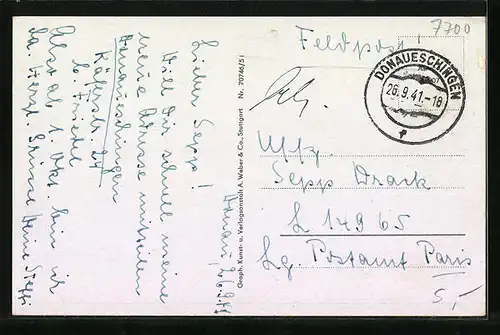 7700
Feldpost!
DONAUESCHINGEN
26.9.41.-18
Uffz.
Sepp Drack
L 14965
Lg. Postamt Paris
5,-
Graph. Kunst- u. Verlagsanstalt A. Weber & Co., Stuttgart Nr. 70746/51
Donau, 26.9.41
Lieber Sepp!
Will Dir schnell meine
neue Adresse mitteilen
Donaueschingen
Käferstr. 24
b. Friedel
Also ab 1. Okt. bin ich
da. Herzl. Grüsse Deine Steffi